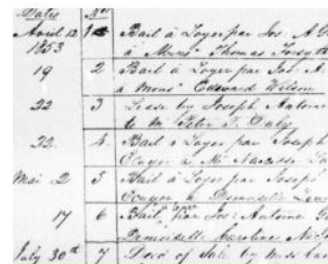 Dates Nos
Avril 12 1 Bail à Loyer par Jos: A
1853 à Monsr Thomas Forsyth
19 2 Bail à Loyer par Jos: A
à Monsr Edward Wilson
22 3 Lease by Joseph Antoine
to Mr Peter Daly
22. 4. Bail à Loyer par Joseph
Ecuyer à Mr Narcisse
Mai 2 5 Bail à Loyer par Joseph
Ecuyer à Demoiselle
17 6 Bail par Jos: Antoine
Demoiselle Caroline
July 30th 7 Deed of Sale by Miss